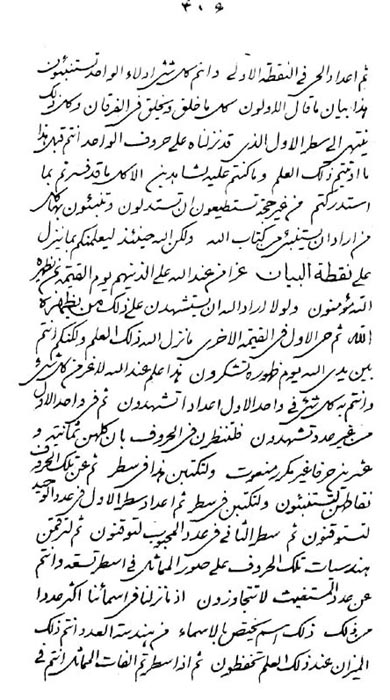 ٣٠٩
ثم اعداد الحی فی النقطة الاولی و انتم کل شیء ادلاء الواحد تستنبئون
هذا بیان ما قال الاولون کل ما خلق و یخلق فی الفرقان و کل ذلک
ینتهی الی سطر الاول الذی قد نزلناه علی حروف الواحد انتم قبل هذا
ما اوتیتم ذلک العلم و ما کنتم علیه لشاهدین الا کل ما قد فسرتم بما
استدرکتم من غیر حجة تستطیعون ان تستدلون و تنبئون بها کل
من اراد ان یستنبئ من کتاب الله ولکن الله حینئذ لیعلمنکم بما نزل
علی نقطة البیان عزا من عند الله علی الذینهم یوم القیمة بمن یظهره
الله یؤمنون و لولا اراد الله ان یستشهدن علی ذلک من یظهره
الله ثم حی الاول فی القیمة الاخری ما نزل الله ذلک العلم ولکنکم انتم
بین یدی الله یوم ظهوره تشکرون هذا علم عند الله لاعز من کل شیء
و انتم به کل شیء فی واحد الاول اعدادا تشهدون ثم فی واحد الاول
من غیر عدد تشهدون فلتنظرن فی الحروف بان کلهن ثمانیه و
عشرین حرفا غیر مکرر منعوت و لتکتبن هذا فی سطر ثم عن تلک الحروف
نقاطهن لتستنبئون و لتکتبن فی سطر ثم اعداد سطر الاول فی عدد الوحید
لتستوقنون ثم سطر الثانی فی عدد المجیب لتوقنون ثم لترقمن
هندسیات تلک الحروف علی صور المماثل فی اسطر تسعه و انتم
عن عدد المستغیث لا تتجاوزون اذ ما نزلنا فی اسمائنا اکثر عددا
من ذلک ذلک اسم یختص بالاسماء من هندسة العدد انتم ذلک
المیزان عند ذلک العلم تحفظون ثم اذا سطرتم الفات المماثل انتم فی